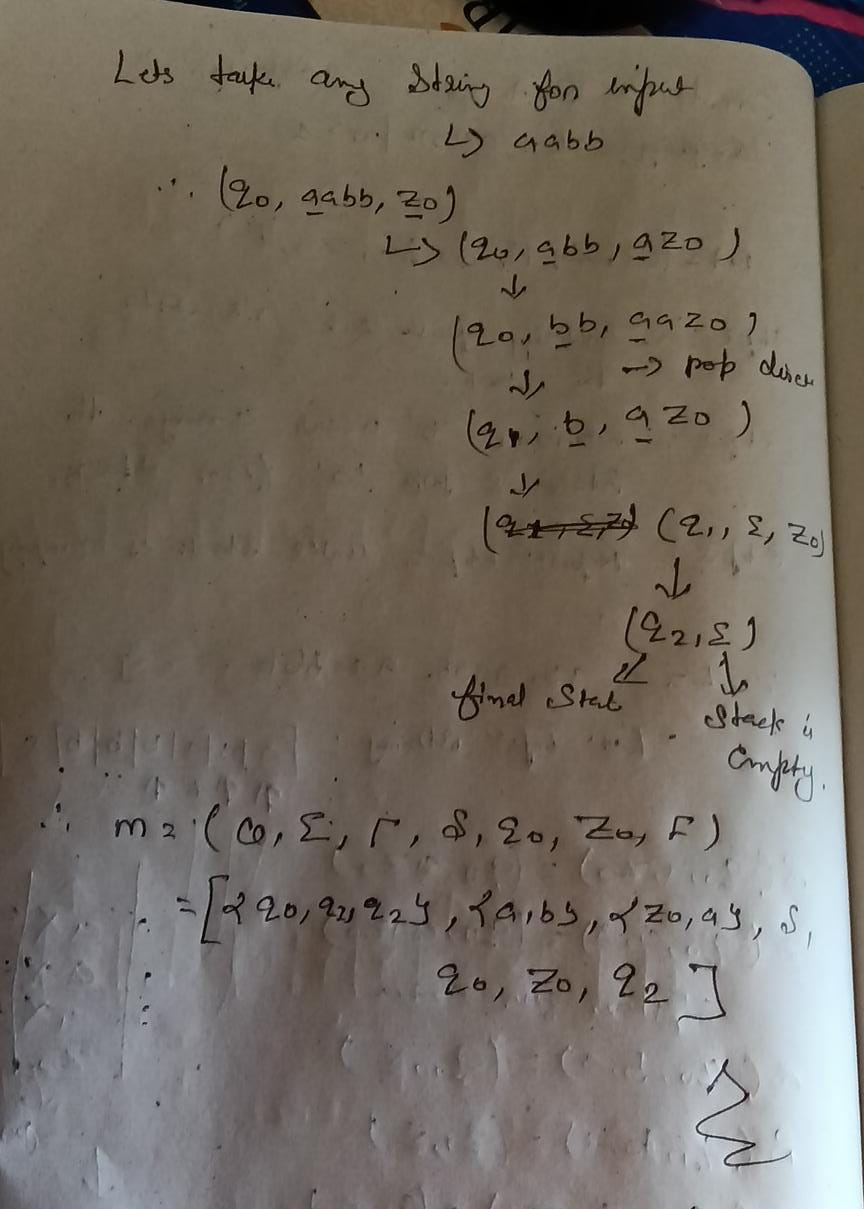 Lets take any String for input
↳ aabb
∴ (q0, aabb, z0)
↳ (q0, abb, az0)
↓
(q0, bb, aaz0)
↓ → pop
(q1, b, az0)
↓
(q1, ε, z0) (q1, ε, z0)
↓
(q2, ε)
↙ ↓
final Stat
Stack is
Empty.
∴ m = (Q, Σ, Γ, δ, q0, Z0, F)
= [{q0, q1, q2}, {a, b}, {z0, a}, δ,
q0, z0, q2]